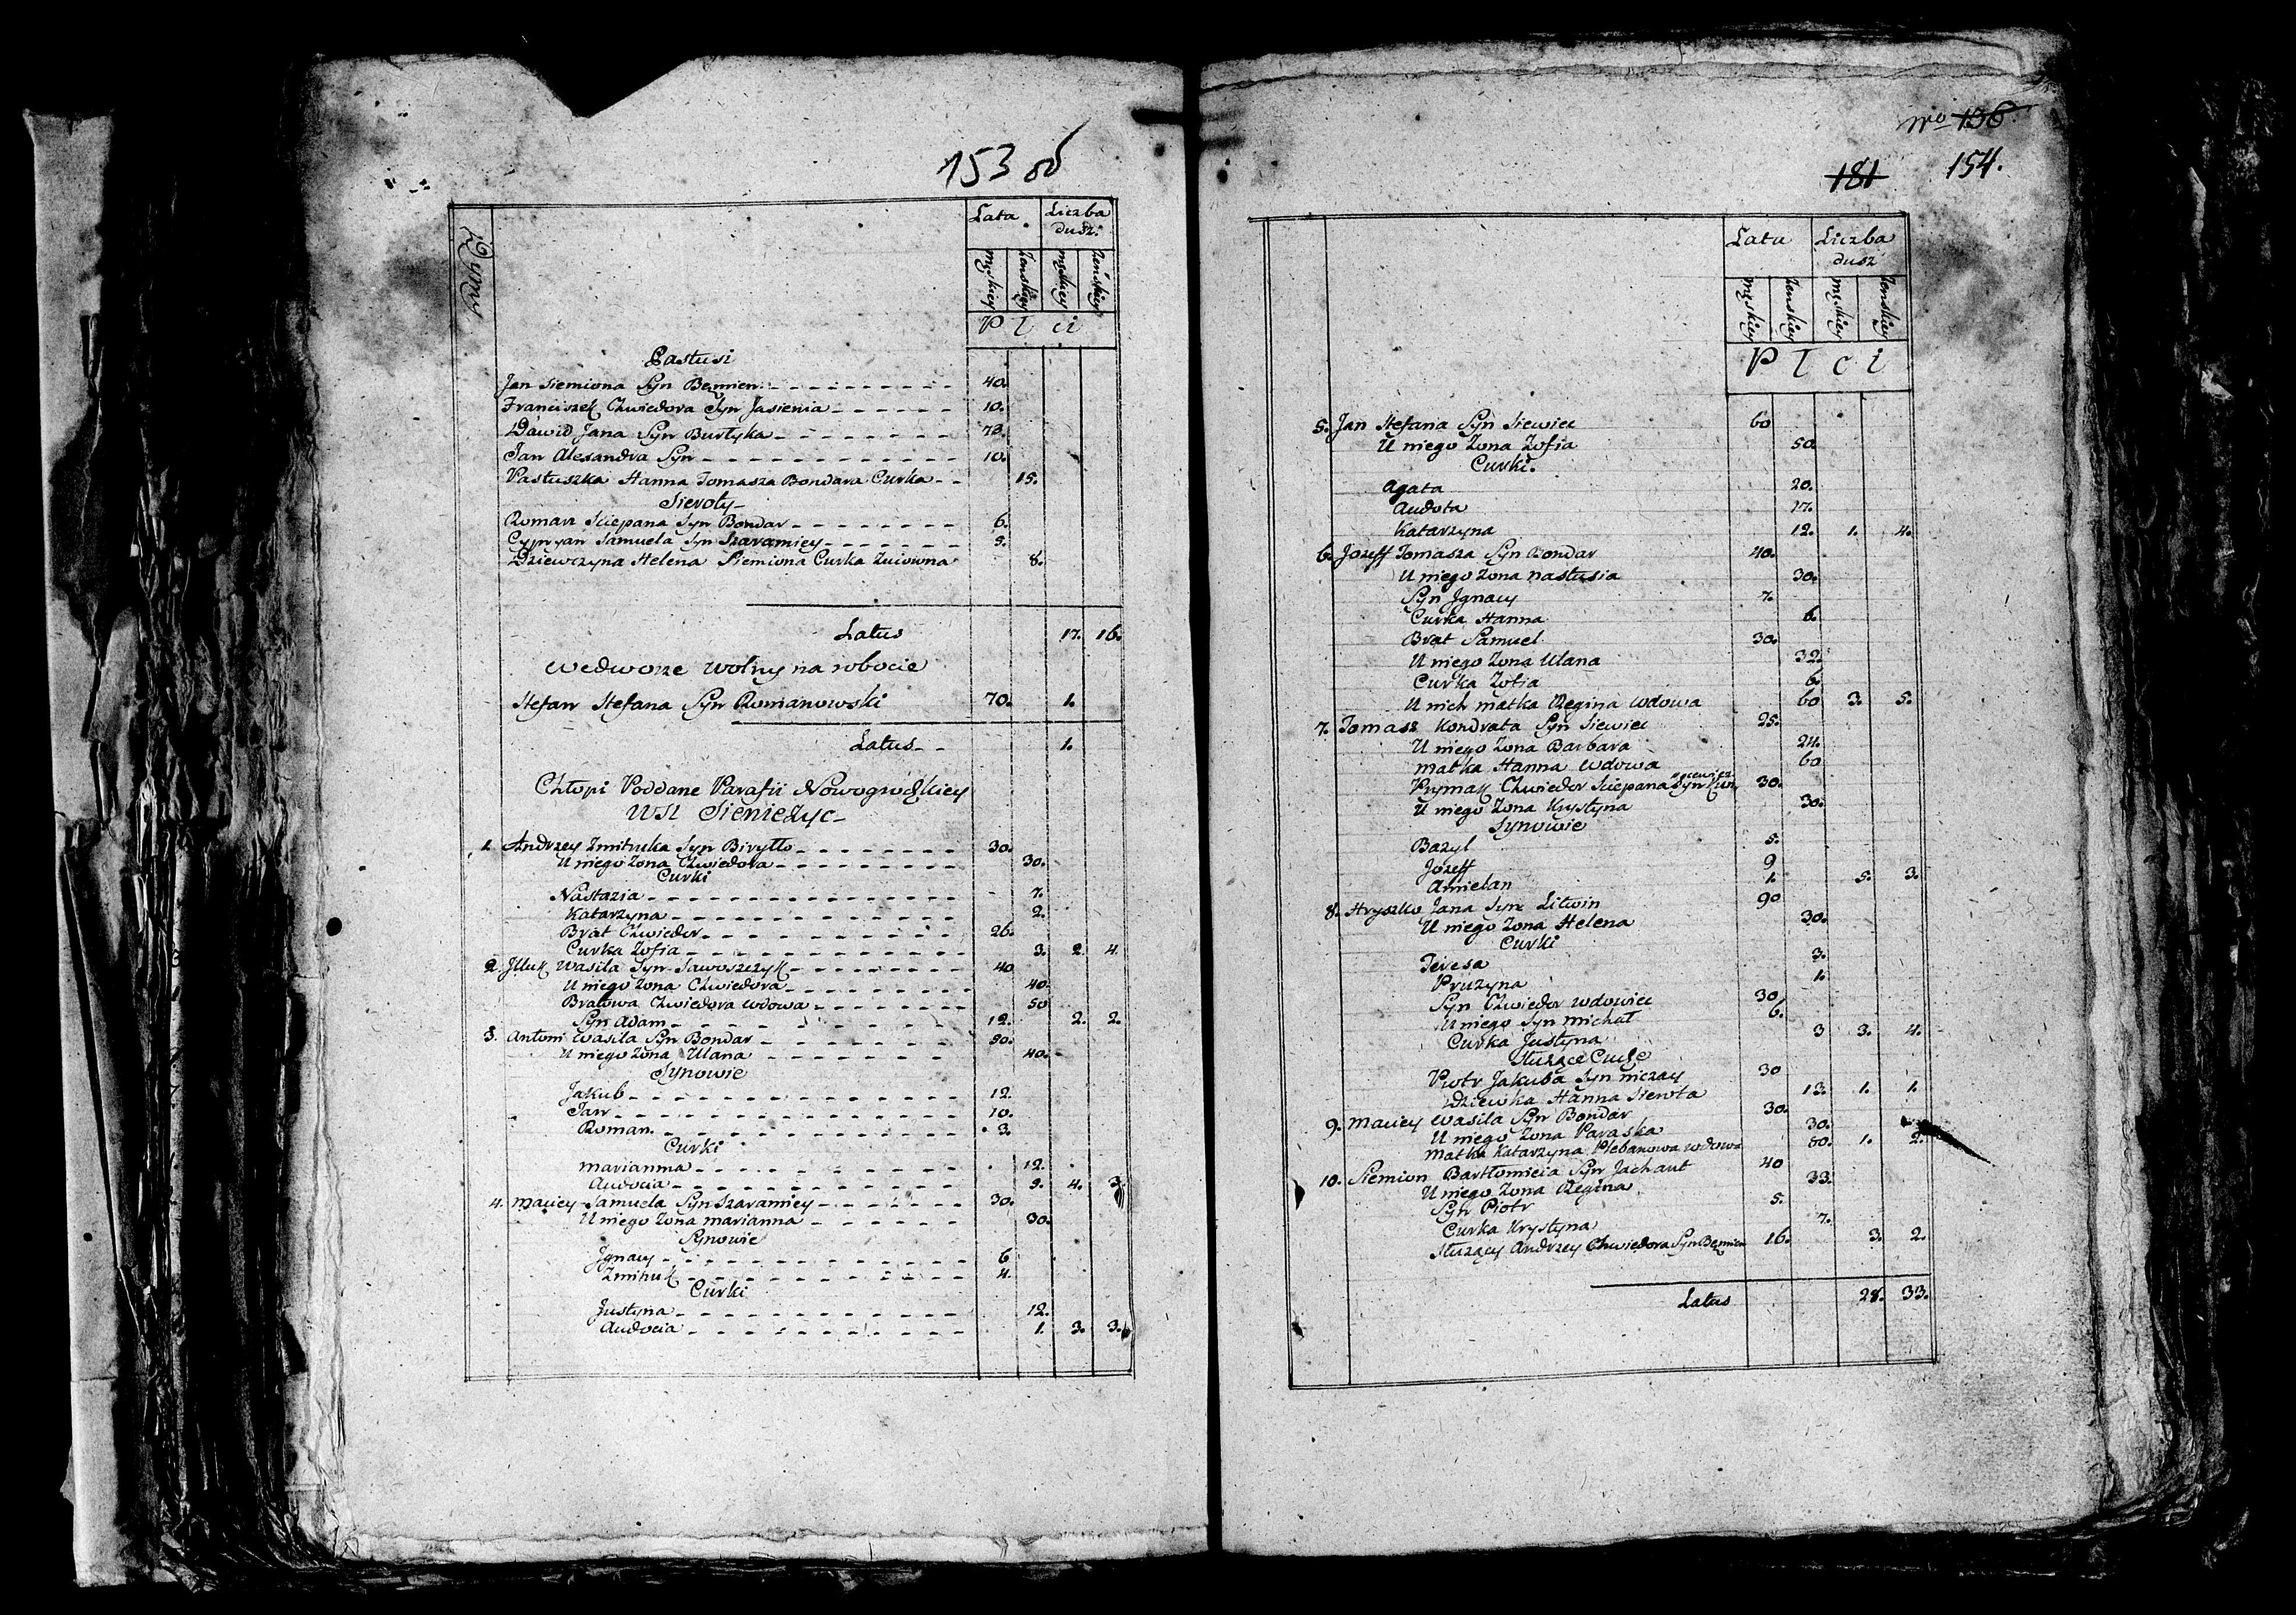 153 об
Dymy
Lata Liczba dusz.
męskiey żenskiey męskiey żeńskiey
Płci
Pastusi
Jan Siemiona Syn Bęmien 40.
Franciszek Chwiedora Syn Jasienia 10.
Dawid Jana Syn Burtyka 73.
Jan Alexandra Syn 10.
Pastuszka Hanna Tomasza Bondara Curka 15.
Sieroty
Roman Sciepana Syn Bondar 6.
Cypryan Samuela Syn Szaramiey 9.
Dziewczyna Helena Siemiona Curka Zuiowna 8.
Latus 17. 16.
we dworze wolny na robocie
Stefan Stefana Syn Romanowski 70. 1.
Latus 1.
Chłopi Poddane Parafii Nowogrodzkiey
Wsi Sieniezyc
1. Andrzey Zmitruka Syn Biryłło 30.
U niego Zona Chwiedora 30.
Curki
Nastazia 7.
Katarzyna 2.
Brat Chwiedor 26.
Curka Zofia 3. 2. 4.
2. Illuk Wasila Syn Sawoszczyk 40
U niego Zona Chwiedora 40.
Bratowa Chwiedora wdowa 50
Syn Adam 12. 2. 2.
3. Antoni Wasila Syn Bondar 50.
U niego Zona Ulana 40.
Synowie
Jakub 12.
Jan 10.
Roman 3.
Curki
Marianna 12.
Audocia 9. 4. 3.
4. Maciey Samuela Syn Szaramiey 30.
U niego Zona Marianna 30.
Synowie
Jgnacy 6
Zmitruk 4.
Curki
Justyna 12.
Audocia 1. 3. 3.
Nro 136.
181 154.
Lata Liczba dusz
męskiey żenskiey męskiey żenskiey
Płci
5. Jan Stefana Syn Siewiec 60
U niego Zona Zofia 50.
Curki.
Agata 20.
Audota 17.
Katarzyna 12. 1. 4.
6. Jozeff Tomasza Syn Bondar 40.
U niego Zona Nastusia 30.
Syn Jgnacy 7.
Curka Hanna 6.
Brat Samuel 30.
U niego Zona Ulana 32.
Curka Zofia 6.
U nich matka Regina wdowa 60 3. 5.
7. Tomasz Kondrata Syn Siewiec 25.
U niego Zona Barbara 24.
Matka Hanna wdowa 60
Prymak Chwiedor Sciepana Syn 30.
U niego Zona Krystyna 30.
Synowie
Bazyl 5.
Jozeff 9
Amielan 1. 5. 3.
8. Hryszko Jana Syn Litwin 90
U niego Zona Helena 30.
Curki
Teresa 3.
Pruzyna 1.
Syn Chwiedor wdowiec 30
U niego Syn Michał 6.
Curka Justyna 3 3. 4.
Służące Cudze
Piotr Jakuba Syn Niczay 30
Dziewka Hanna Sierota 13. 1. 1.
9. Maciey Wasila Syn Bondar 30.
U niego Zona Paraska 30.
Matka Katarzyna Plebanowa wdowa 80. 1. 2.
10. Siemion Bartłomieia Syn Jachaut 40
U niego Zona Regina 33.
Syn Piotr 5.
Curka Krystyna 7.
Służący Andrzey Chwiedora Syn Bęmien 16. 3. 2.
Latus 28. 33.